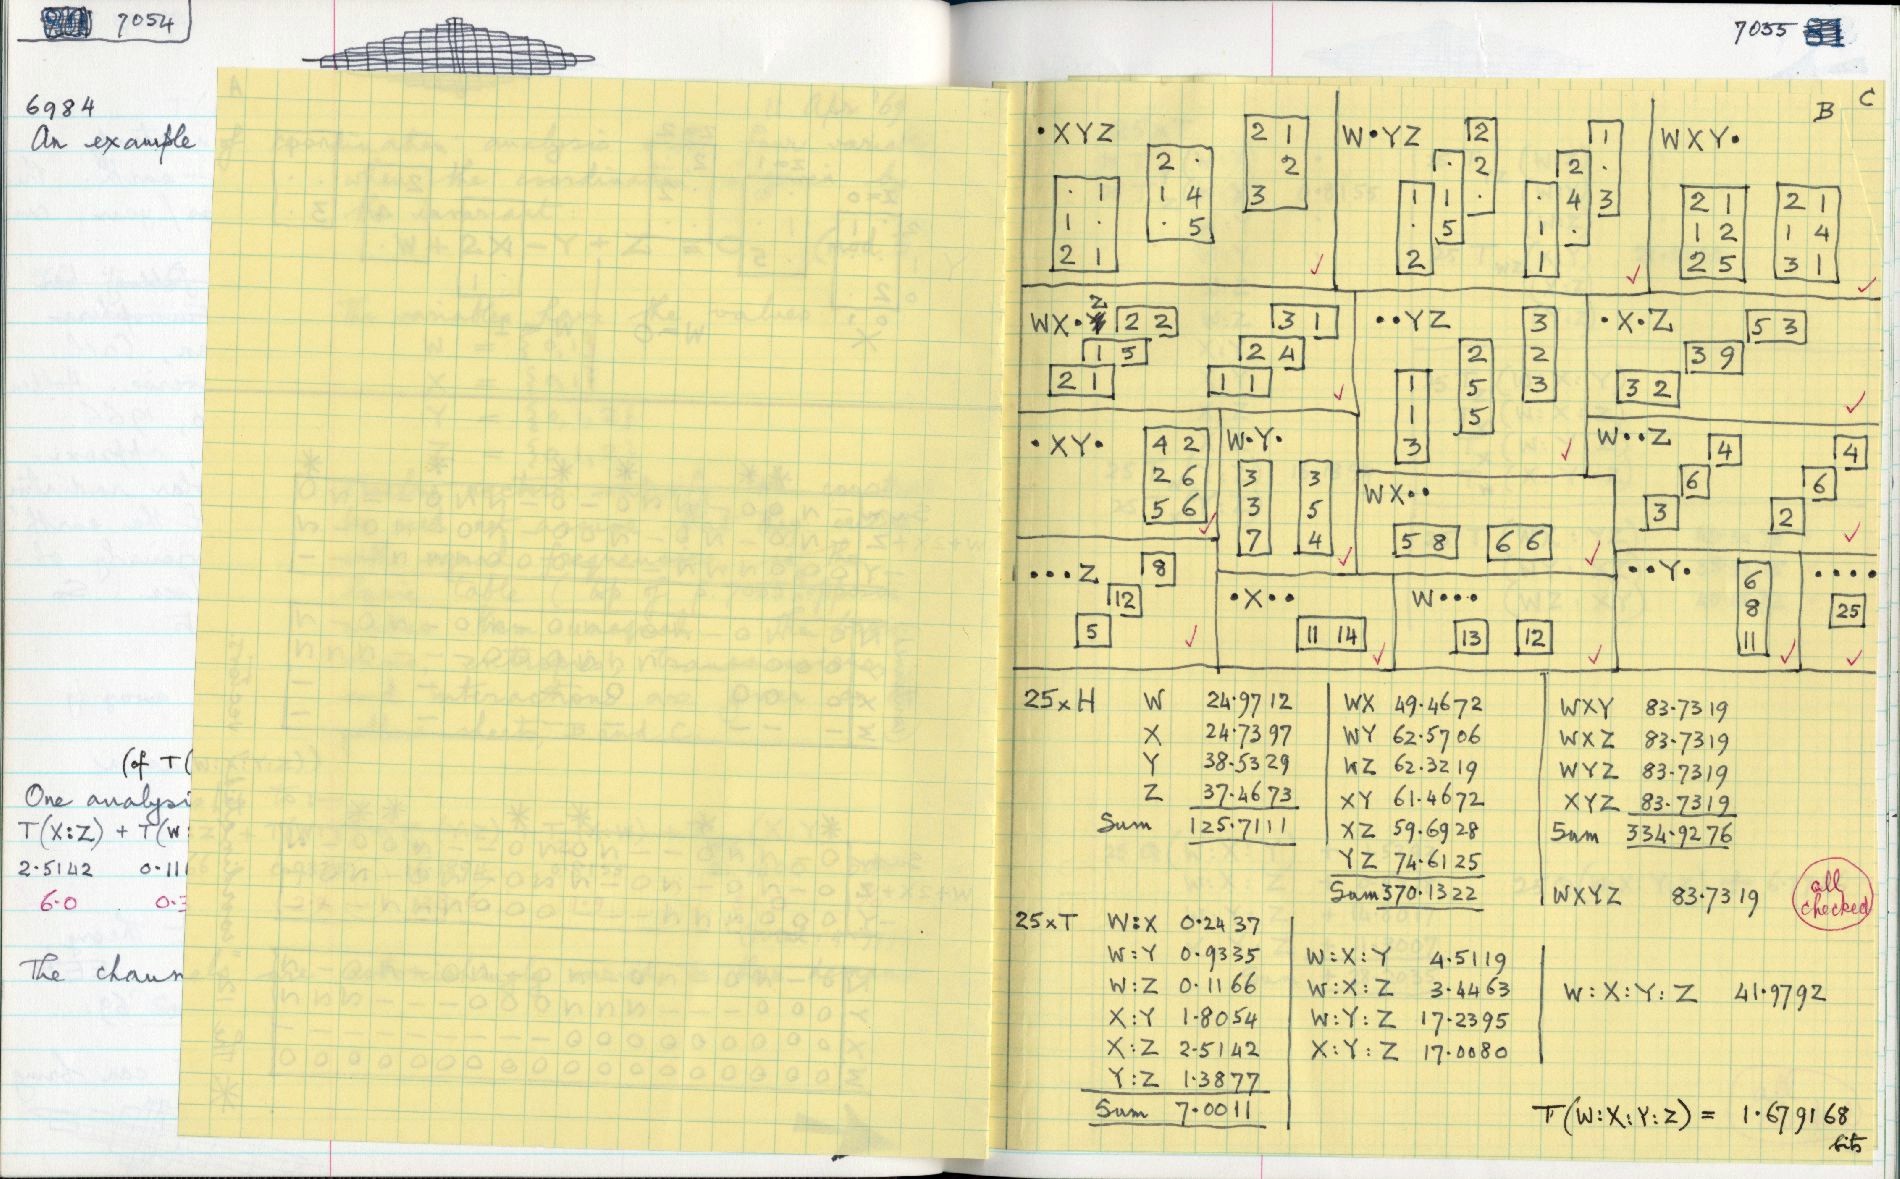 7054
6984
An example
(of T(
One analysi
T(X:Z) + T(W:
2.5142 0.11
6.0 0.3
The chann
7055
B C
•XYZ
2 1
2
3
2 ·
1 4
· 5
· 1
1 ·
2 1
W•YZ
2
2
·
·
1
5
1
·
2
1
·
3
2
4
·
·
1
1
WXY•
2 1
1 2
2 5
2 1
1 4
3 1
WX•Z
2 2
1 5
2 1
3 1
2 4
1 1
••YZ
3
2
3
2
5
5
1
1
3
•X•Z
5 3
3 9
3 2
•XY•
4 2
2 6
5 6
W•Y•
3
3
7
3
5
4
WX••
5 8
6 6
W••Z
4
6
3
4
6
2
•••Z
8
12
5
•X••
11 14
W•••
13
12
••Y•
6
8
11
••••
25
25xH
W 24.9712
X 24.7397
Y 38.5329
Z 37.4673
Sum 125.7111
WX 49.4672
WY 62.5706
WZ 62.3219
XY 61.4672
XZ 59.6928
YZ 74.6125
Sum 370.1322
WXY 83.7319
WXZ 83.7319
WYZ 83.7319
XYZ 83.7319
Sum 334.9276
WXYZ 83.7319
all
checked
25xT
W:X 0.2437
W:Y 0.9335
W:Z 0.1166
X:Y 1.8054
X:Z 2.5142
Y:Z 1.3877
Sum 7.0011
W:X:Y 4.5119
W:X:Z 3.4463
W:Y:Z 17.2395
X:Y:Z 17.0080
W:X:Y:Z 41.9792
T(W:X:Y:Z) = 1.679168
bits